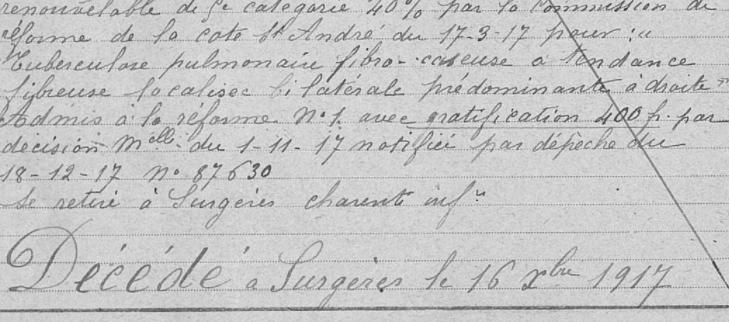 renouvelable de 5e catégorie 40% par la commission de
réforme de la cote St André du 17-3-17 pour : "
Tuberculose pulmonaire fibro-caseuse à tendance
fibreuse localisée bilatérale prédominante à droite"
Admis à la réforme N°1. avec gratification 400 fr. par
décision Melle. du 1-11-17 notifiée par dépêche du
18-12-17 No 87630
Se retire à Surgères charente infre
Décédé à Surgères le 16 xbre 1917